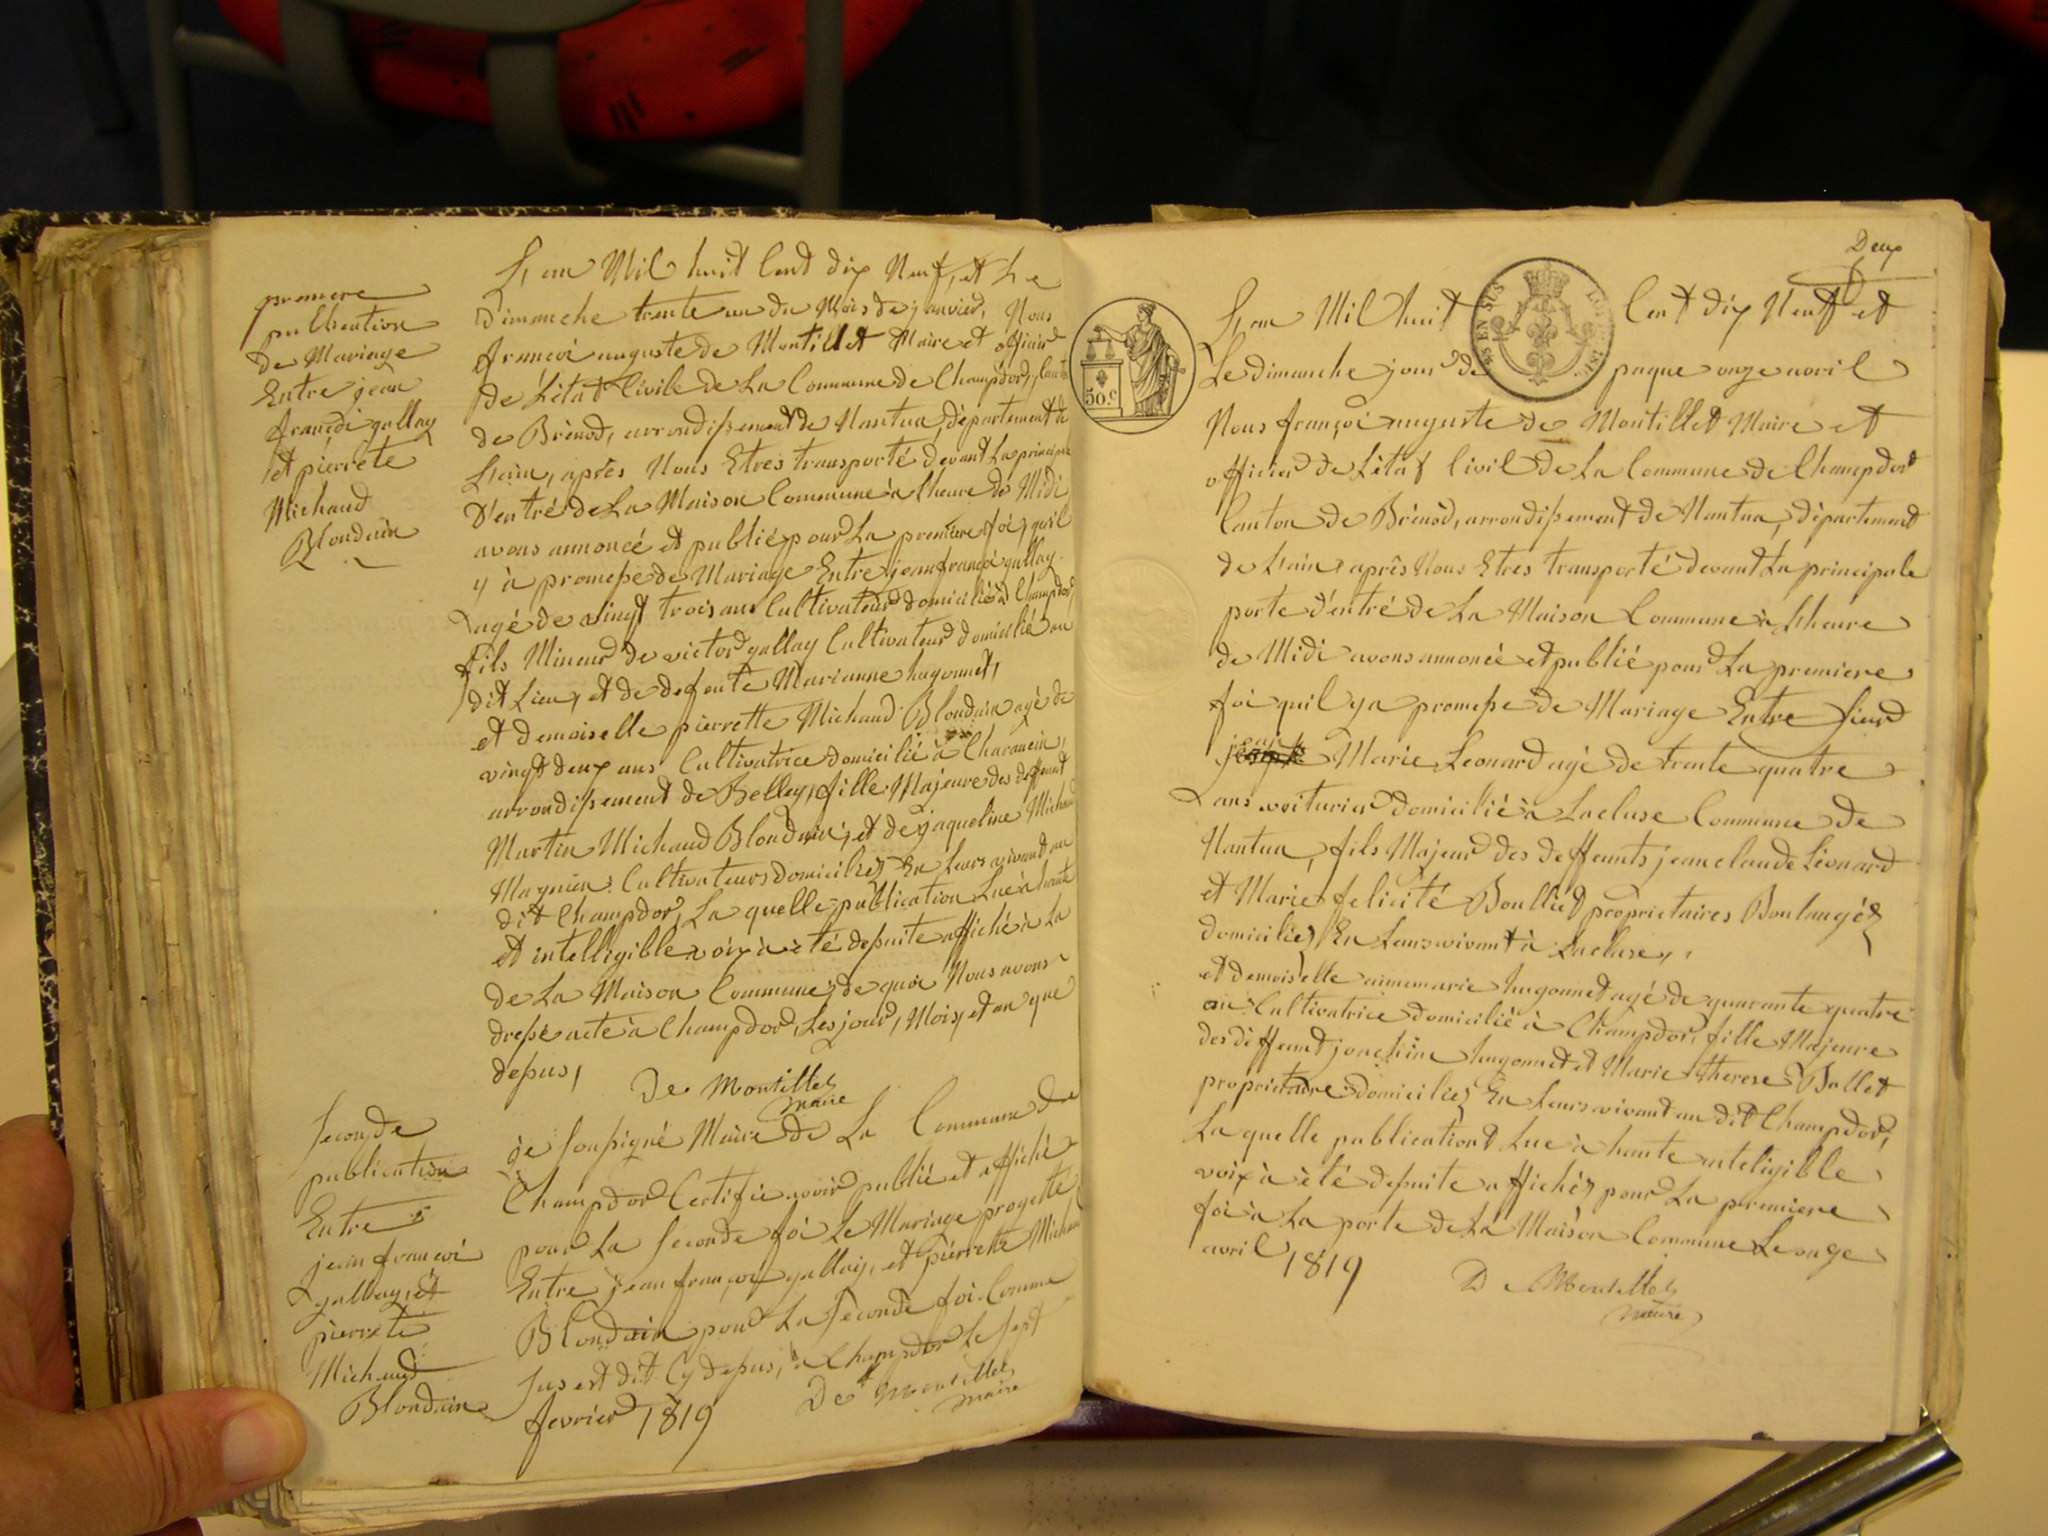 premiere
publication
de Mariage
Entre jean
françoi gallay
et pierrete
Michaud
Blondain
L'an Mil huit Cent dix Neuf, et Le
Dimanche trente un du Mois de janvier, Nous
françoi auguste de Montillet Maire et officier
de L'état Civile de La Commune de Champdor, Canton
de Brénod, arrondissement de Nantua, département de
L'ain, après Nous Etres transporté devant La principale
D'entré de La Maison Commune à L'heure de Midi
avons annoncé et publié pour La premiere foi, quil
y à promesse de Mariage Entre jean françoi gallay
agé de vingt trois ans Cultivateur domicilié à Champdor,
fils Mineur de victor gallay Cultivateur domicilié au
dit Lieu, et de defente Marianne hugonnet,
et demoiselle pierrette Michaud Blondain agé de
vingt deux ans Cultivatrice domicilié à Charancin,
arrondissement de Belley, fille Majeure des deffeunt
Martin Michaud Blondain, et de jaqueline Michaud
Magnien Cultivateurs domiciliez En Leurs vivant au
dit Champdor, La quelle publication Lue à haute
et intelligible voix à été desuite affiché à La
de La Maison Commune, de quoi Nous avons
dressé acte à Champdor, Les jour, Mois, et an que
dessus,
De Montillet
maire
Seconde
publication
Entre
jean françoi
gallay, et
pierrete
Michaud
Blondain
je Soussigné Maire de La Commune de
Champdor Certifie avoir publié et affiché
pour La Seconde foi Le Mariage progetté
Entre jean françoi gallay, et pierrette Michaud
Blondain pour La Seconde foi Comme
Jus est dit Cy dessus, à Champdor Le Sept
fevrier 1819
De Montillet
maire
Deux
50.c
L'an Mil huit Cent dix Neuf et
Le dimanche jour de paque onze avril
Nous françoi auguste de Montillet Maire et
officier de L'état Civil de La Commune de Champdor
Canton de Brénod, arrondissement de Nantua, département
de L'ain, après Nous Etres transporté devant La principale
porte d'entré de La Maison Commune à L'heure
de Midi avons annoncé et publié pour La premiere
foi quil ya promesse de Mariage Entre Sieur
Marie Leonard agé de trente quatre
ans voiturier domicilié à Lacluse Commune de
Nantua, fils Majeur des deffeunts jean claude Léonard
et Marie felicité Boullier proprietaires Boulangéz
domiciliez En Leurs vivant à Lacluse,
et demoiselle annemarie hugonnet agé de quarante quatre
an Cultivatrice domicilié à Champdor, fille Majeure
des diffeunt joachin hugonnet et Marie therese Ballet
proprietaire domiciliez En Leurs vivant au dit Champdor,
La quelle publication Lue à haute inteligible
voix à été desuite affichéz pour La premiere
foi à La porte de La Maison Commune Le onze
avril 1819
De Montillet
maire